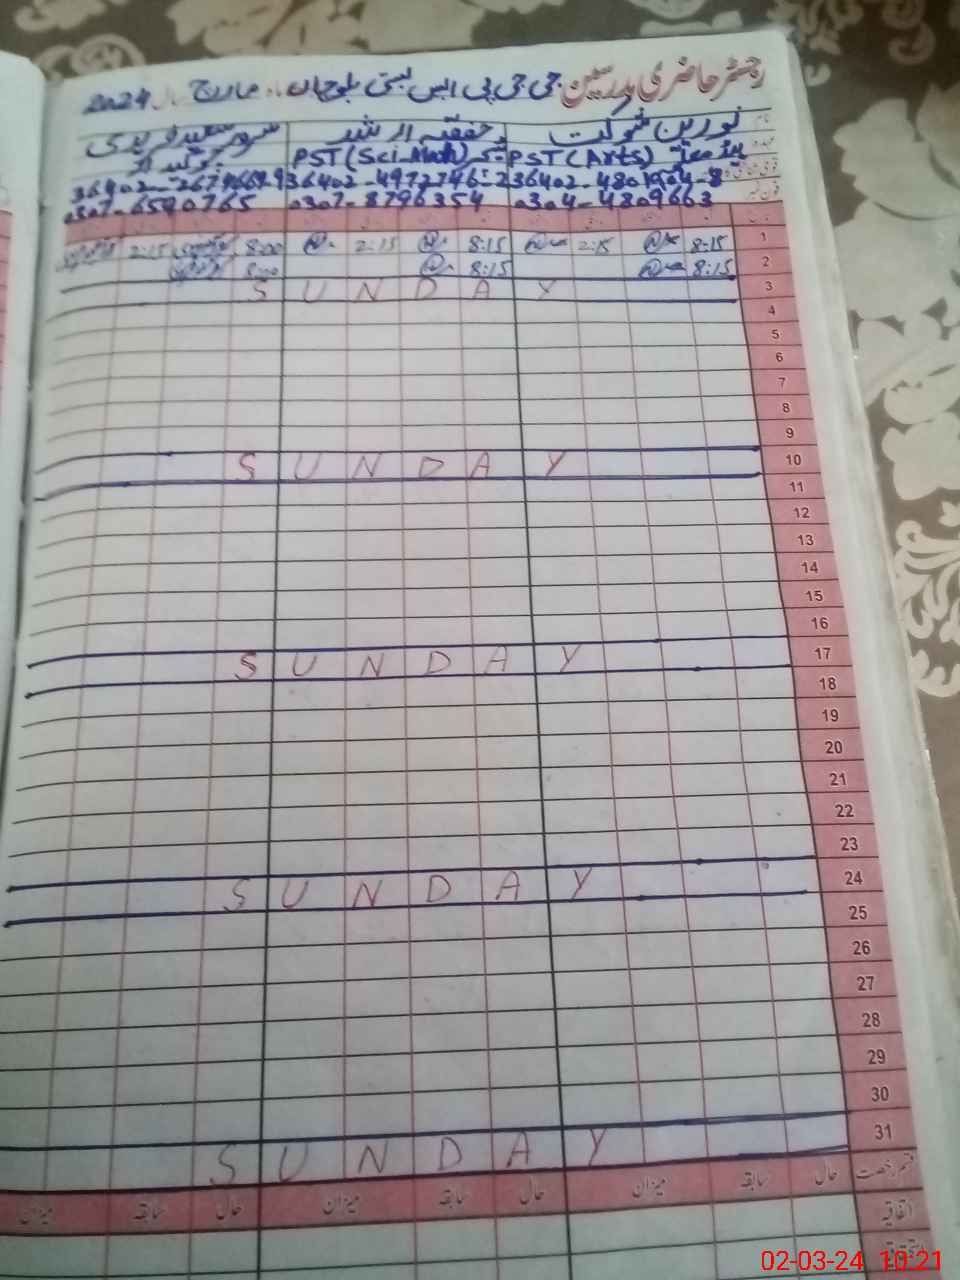 رجسٹر حاضری مدرسین جی جی پی ایس بستی بلوچاں ماہ مارچ سال 2024
نام نورین شوکت حفقیہ ارشد سعید فریدی
عہدہ PST (Arts) PST (Sci-Math) چوکیدار
36402-4801904-8 36402-4972746-2 36402-2679667-9
فون نمبر 0304-4809663 0307-8796354 0307-6590765
1 8:15 2:15 8:15 2:15 8:00 2:15
2 8:15 8:15 8:00
3 SUNDAY
4
5
6
7
8
9
10 SUNDAY
11
12
13
14
15
16
17 SUNDAY
18
19
20
21
22
23
24 SUNDAY
25
26
27
28
29
30
31 SUNDAY
قسم رخصت حال سابقہ میزان حال سابقہ میزان حال سابقہ میزان
اتفاقیہ
02-03-24 10:21